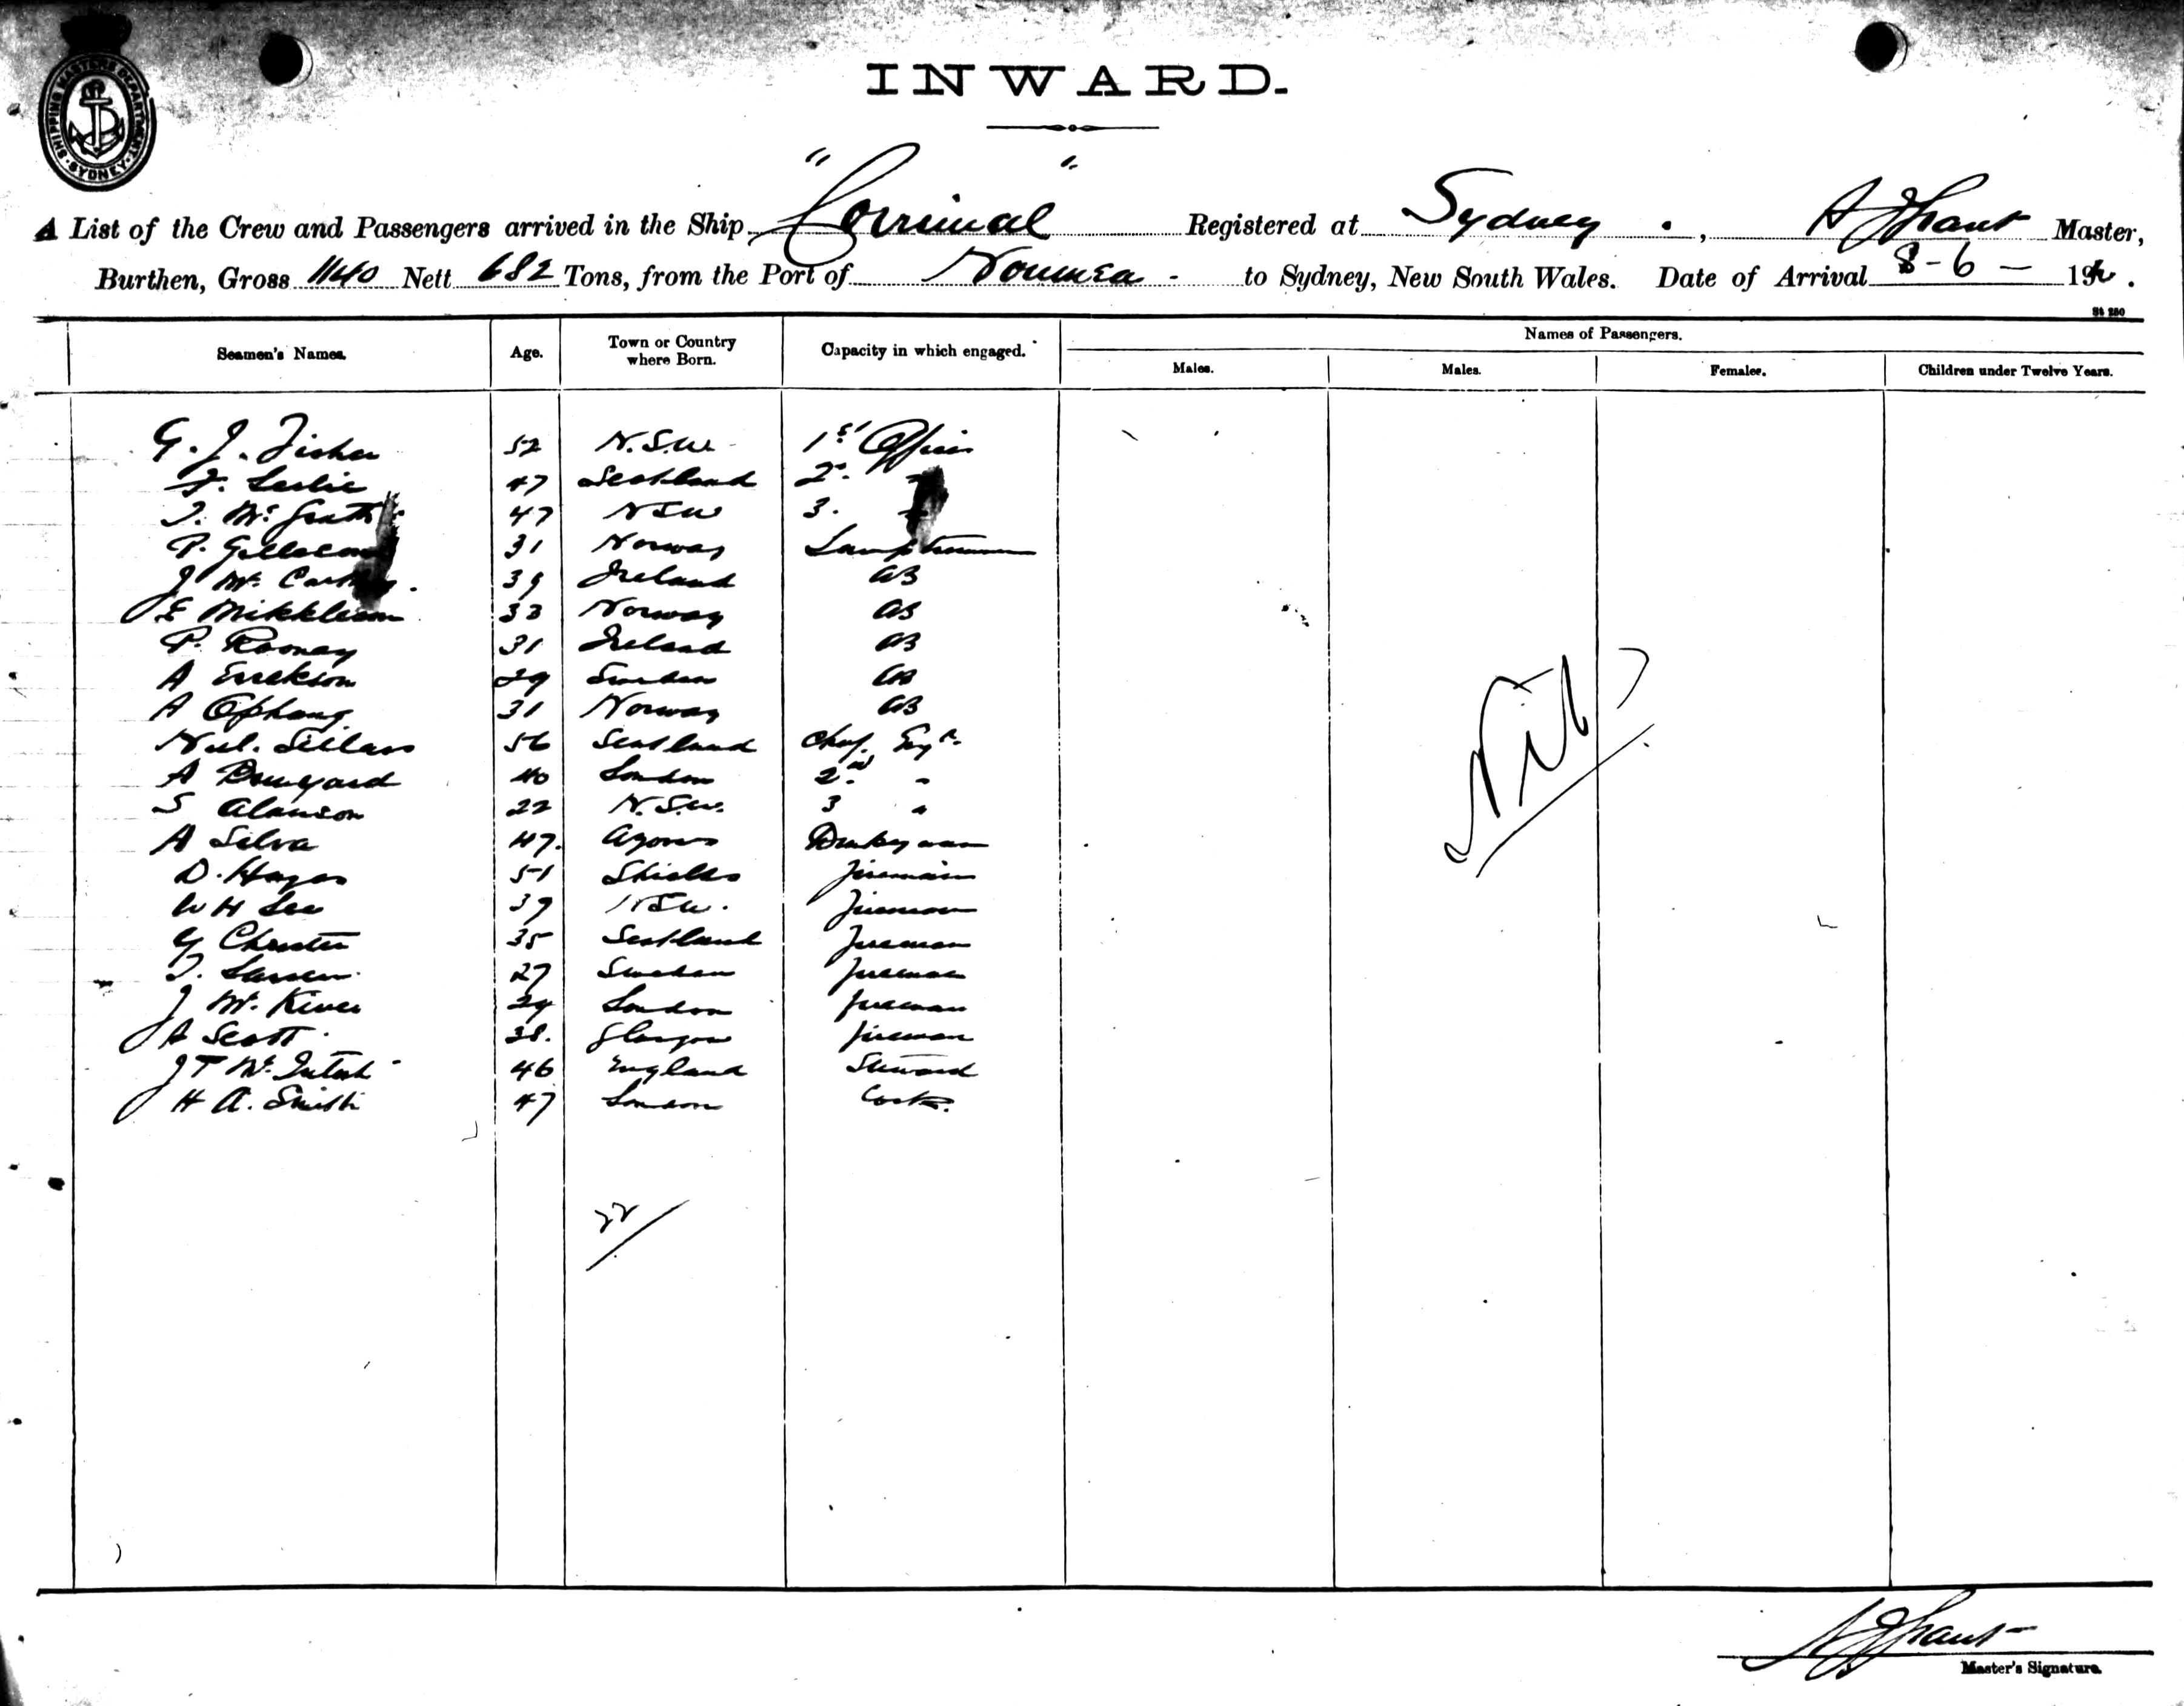 SHIPPING MASTERS DEPARTMENT. SYDNEY
INWARD.
A List of the Crew and Passengers arrived in the Ship "Corrimal" Registered at Sydney . , A J Grant Master,
Burthen, Gross 1140 Nett 682 Tons, from the Port of Noumea - to Sydney, New South Wales. Date of Arrival 8-6- 19
St 250
Seamen's Names. Age. Town or Country where Born. Capacity in which engaged. Names of Passengers.
Males. Males. Females. Children under Twelve Years.
G. J. Fisher 52 N.S.W. 1st Officer
F. Leslie 47 Scotland 2
T. McGrath 47 NSW 3.
P. 31 Norway Lamptrimmer
J McCarthy 39 Ireland AB
E Mikkleson 33 Norway AB
P. Rooney 31 Ireland AB
A Errekson 29 Sweden AB
A Ophaug 31 Norway AB
Neil. Sillars 56 Scotland Chief Engr
A 40 London 2nd "
S Alanson 22 N.S.W. 3 "
A Silva 47. Azores Donkeyman
D. Hayes 51 Shields Fireman
W H Lee 39 NSW. Fireman
G Christie 35 Scotland Fireman
T. Larsen 27 Sweden Fireman
J 29 London Fireman
A Scott 38. Glasgow Fireman
J T McIntosh 46 England Steward
H A. Smith 47 London Cook.
Nil
22
A J Grant
Master's Signature.